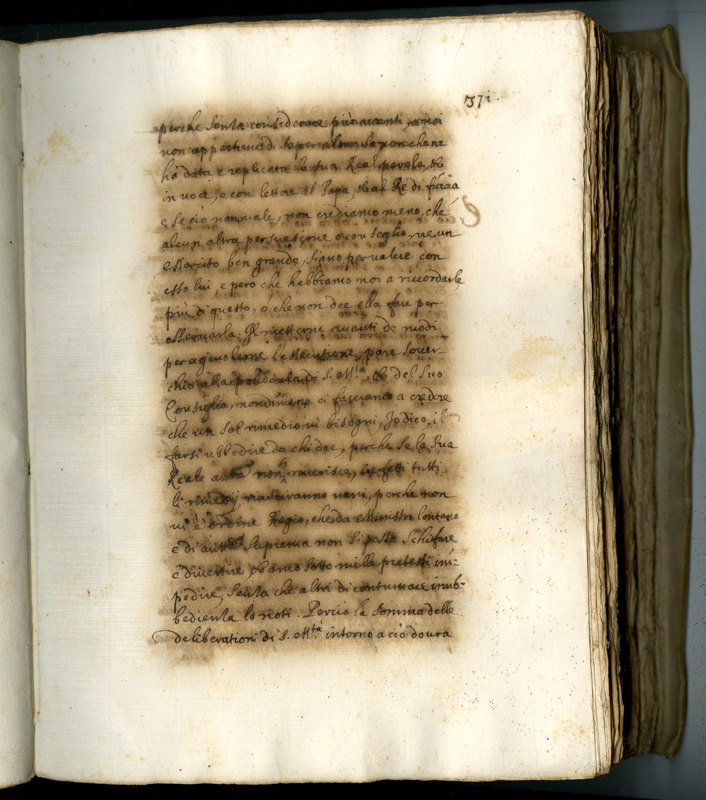 371.
perche senza considerare più avanti, a noi
non appartiene di saper altro, se non che ne
ha data e replicata la sua Real parola, et
in voce, e con lettere al Papa, et al Re di
e se ciò non vale, non crediamo meno, che
alcun altra persuasione o conseglio, ne un
essercito ben grande, siano per valere con
esso lui, e però che habbiamo noi a ricordarle
più di questo, ò che non dee ella fare per
osservarla. Il metterne avanti de modi
per agevolarne pare sover-
chio alla prudenza di S. M.ta, et del suo
Consiglio, nondimeno ci facciamo a credere
che un sol rimedio vi bisogni, Io dico, il
farsi ubbedire da chi dee, perche se la sua
Reale non riverisce, tutti
li rimedij vani, perche non
vi è ordine Regio, che da Ministri lontano
e di suprema non si possa schifare
e divertire, et anco sotto mille pretesti im-
pedire, senza che altri di contumace inub-
bedienza lo noti. Perciò la somma delle
deliberationi di S. M.ta intorno a ciò dovrà